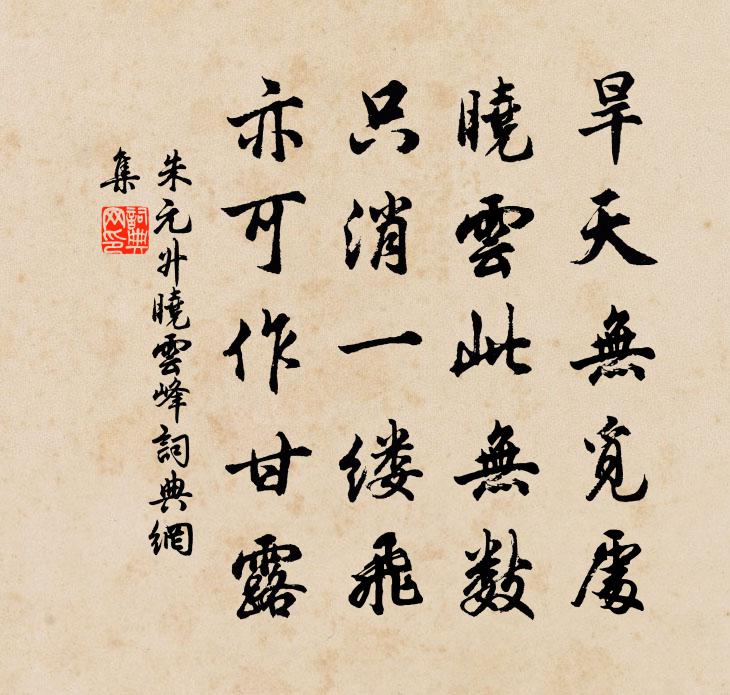 旱天無覓處
曉雲此無數
只消一缕飛
亦可作甘露
朱元升曉雲峰詞典網
集
詞典
网印